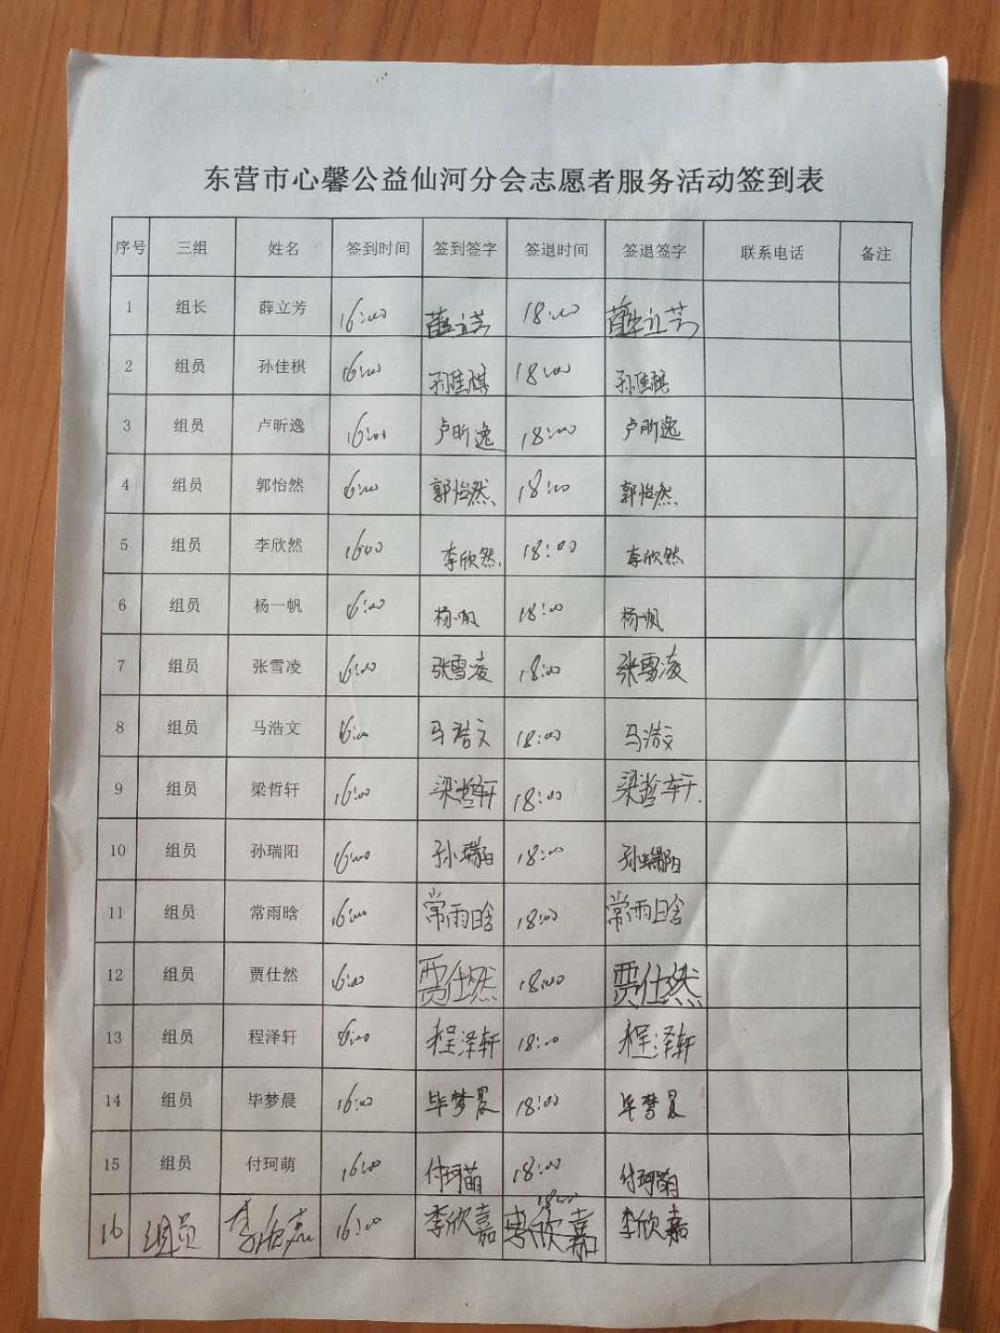 东营市心馨公益仙河分会志愿者服务活动签到表
序号 三组 姓名 签到时间 签到签字 签退时间 签退签字 联系电话 备注
1 组长 薛立芳 16:00 薛立芳 18:00 薛立芳
2 组员 孙佳棋 16:00 孙佳棋 18:00 孙佳棋
3 组员 卢昕逸 16:00 卢昕逸 18:00 卢昕逸
4 组员 郭怡然 16:00 郭怡然 18:00 郭怡然
5 组员 李欣然 1600 李欣然 18:00 李欣然
6 组员 杨一帆 16:00 杨一帆 18:00 杨一帆
7 组员 张雪凌 16:00 张雪凌 18:00 张雪凌
8 组员 马浩文 16:00 马浩文 18:00 马浩文
9 组员 梁哲轩 16:00 梁哲轩 18:00 梁哲轩
10 组员 孙瑞阳 16:00 孙瑞阳 18:00 孙瑞阳
11 组员 常雨晗 16:00 常雨晗 18:00 常雨晗
12 组员 贾仕然 16:00 贾仕然 18:00 贾仕然
13 组员 程泽轩 16:00 程泽轩 18:00 程泽轩
14 组员 毕梦晨 16:00 毕梦晨 18:00 毕梦晨
15 组员 付珂萌 16:00 付珂萌 18:00 付珂萌
16 组员 李欣嘉 16:00 李欣嘉 18:00 李欣嘉 李欣嘉